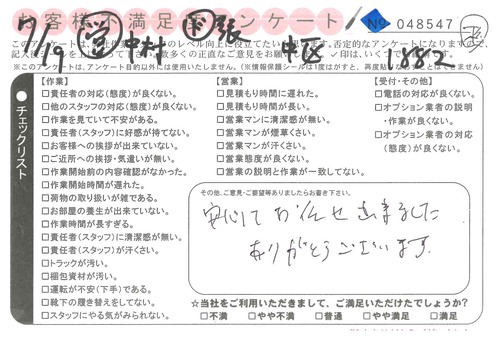 お客様不満足度アンケート
№ 048547
7/9 中村 張 中区 1882
このアンケートは
※このアンケートは、アンケート目的以外には使用いたしません。
チェックリスト
【作業】
□責任者の対応(態度)が良くない。
□他のスタッフの対応(態度)が良くない。
□作業を見ていて不安がある。
□責任者(スタッフ)に好感が持てない。
□お客様への挨拶が出来ていない。
□ご近所への挨拶・気遣いが無い。
□作業開始前の内容確認がなかった。
□作業開始時間が遅れた。
□荷物の取り扱いが雑である。
□お部屋の養生が出来ていない。
□作業時間が長すぎる。
□責任者(スタッフ)に清潔感が無い。
□責任者(スタッフ)が汗くさい。
□トラックが汚い。
□梱包資材が汚い。
□運転が不安(下手)である。
□靴下の履き替えをしてない。
□スタッフにやる気がみられない。
【営業】
□見積もり時間に遅れた。
□見積もり時間が長い。
□営業マンに清潔感が無い。
□営業マンが煙草くさい。
□営業マンが汗くさい。
□営業態度が良くない。
□営業の説明と作業が一致してない。
【受付・その他】
□電話の対応が良くない。
□オプション業者の説明
・作業が良くない。
□オプション業者の対応
(態度)が良くない。
その他、ご意見・ご要望等ありましたらお書き下さい。
安心してお任せ出来ました
ありがとうございます。
☆当社をご利用いただきまして、ご満足いただけたでしょうか?
□不満 □やや不満 □普通 □やや満足 □満足